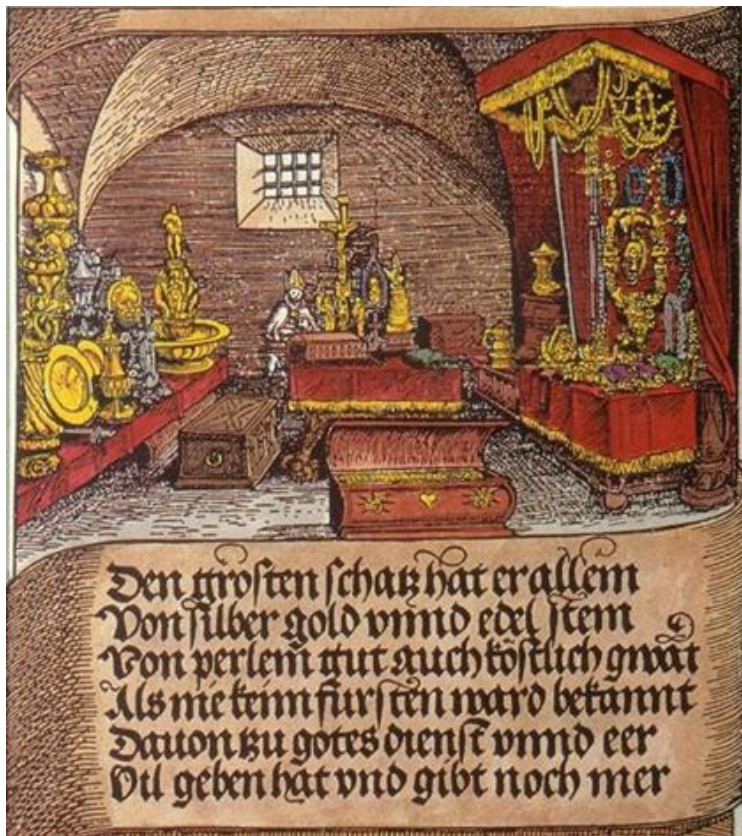 Den grösten schatz hat er allein
Von silber gold vnnd edel stein
Von perlein gut auch köstlich gwāt
Als nie keinn fürsten ward bekannt
Dauon tzu gotes dienst vnnd eer
Vil geben hat vnd gibt noch mer